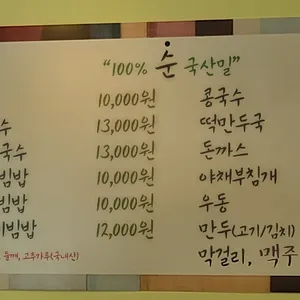 "100% 순 국산밀"
10,000원 콩국수
수 13,000원 떡만두국
국수 13,000원 돈까스
비빔밥 10,000원 야채부침개
빔밥 10,000원 우동
비빔밥 12,000원 만두(고기/김치)
들깨, 고추가루(국내산) 막걸리, 맥주